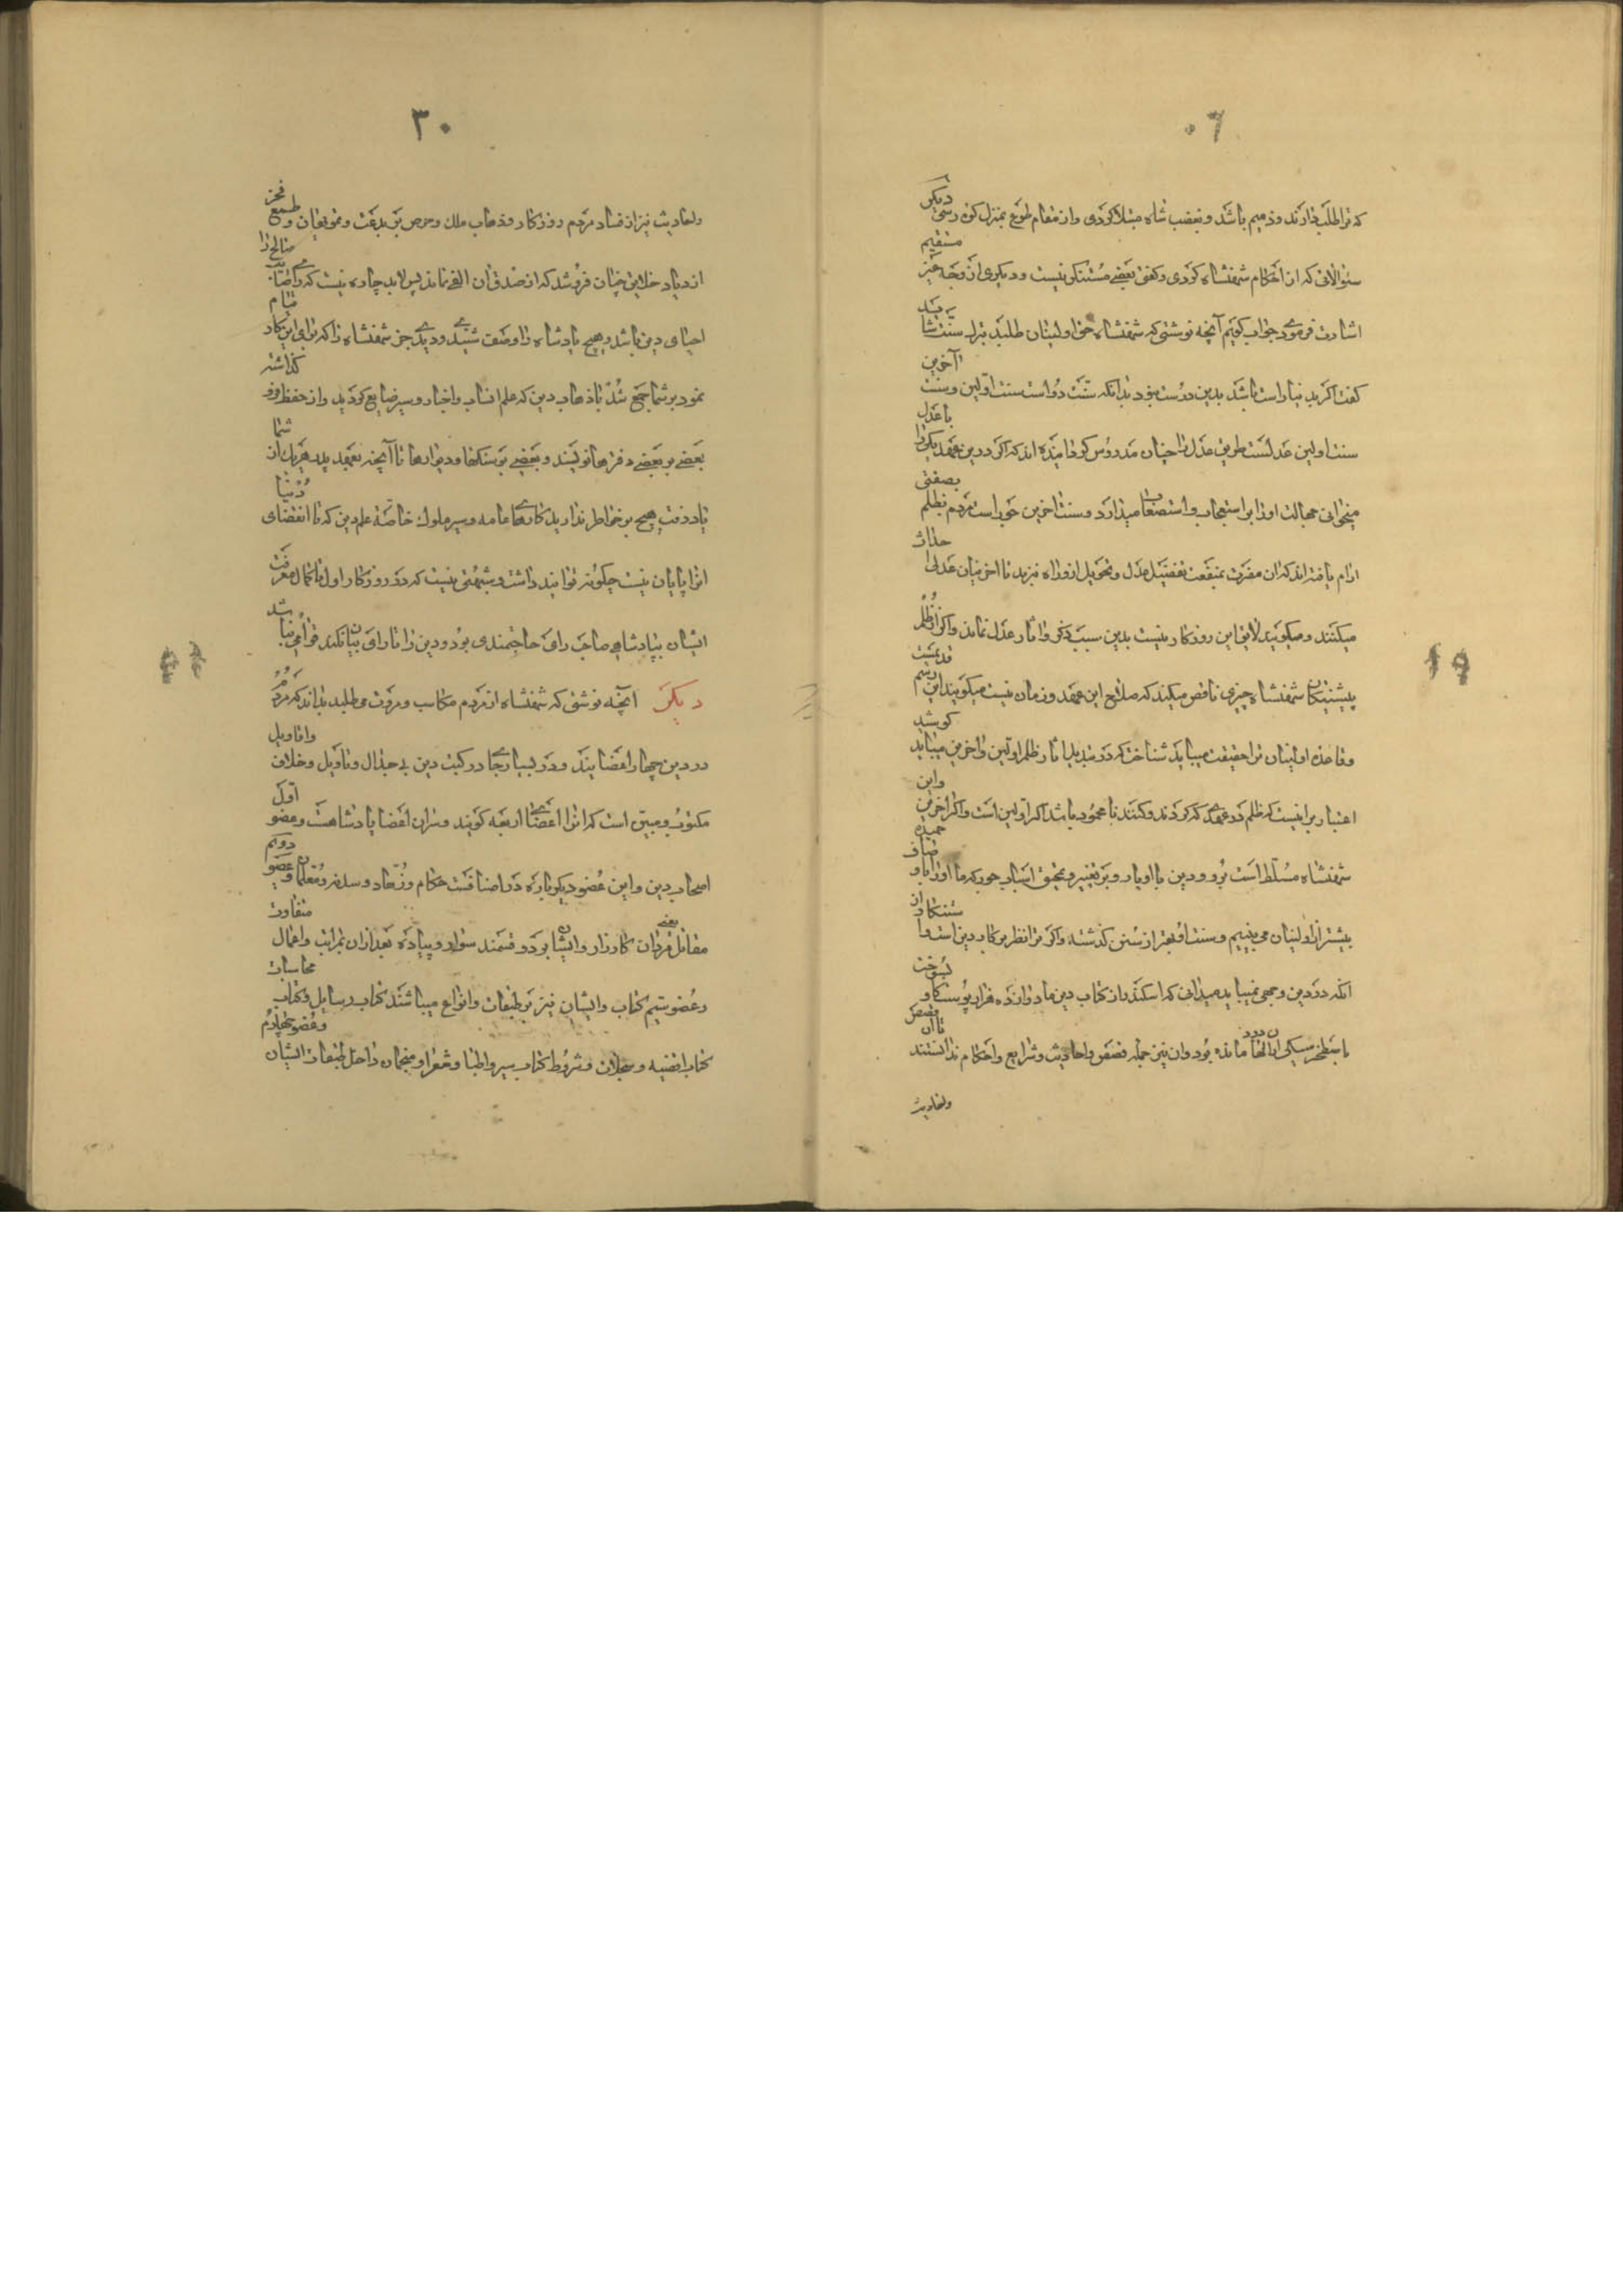 ٠٦
که ترا طلب دارند و ذمیم باشد و بغضب شاه مبتلا کردی و از مقام طوع بمنزل کره رسی دیگر
سئوالاتی که از احکام شهنشاه کردی و گفتی بعضی مستنکر نیست و دیگری از وجه غیر مستقیم
اشارت فرموده جواب گویم آنچه نوشتی که شهنشاه حق اولینان طلبد بترك سنت شاید
گفت اگر بدنیا راست باشد بدین درست نبود بدانکه سنت دو است سنت اولین و سنت آخرین
سنت اولین عدلست طریق عدل را چنان مدروس کردانیده اند که اگر در دین عهد یکی را با عدل
میخوانی جهالت او را بر استعجاب و استصعاب میدارد و سنت آخرین جور است مردم بظلم بصفتی
ارام یافته اند که از مضرت بمنفعت تفضیل عدل و تحویل ازو راه نبرند تا اخرینان عدلی احداث
میکنند و میگویند لایق این روزگار نیست بدین سبب ذکر و اثار عدل نماند و اگر از ظلم
پیشینگان شهنشاه چیزی ناقص میکند که صلاح این عهد و زمان نیست میگویند این رسم قدیمست
و قاعده اولینان ترا حقیقت میباید شناخت که در تبدیل اثار ظلم اولین و اخرین میباید کوشید
اعتبار بر اینست که ظلم در عهدی که کردند و کنند نامحمود باشد اگر اولین است و اگر اخرین و این
شهنشاه مسلط است برو و دین با او یار و بر تغییر و تمحیق اسباب جور که ما او را باوصاف حمیده
بیشتر از اولینان می بینیم و سنت او بهتر از سنن گذشته و اگر ترا نظر بر کار دین است و استنکار از
انکه در دین وجهی نمییابد میدانی که اسکندر از کتاب دین ما دوازده هزار پوست گاو بسوخت
باسطخر سیکی از ان در دلها مانده بود و ان نیز جمله قصص و احادیث و شرایع و احکام ندانستند تا ان قصص
و احادیث
٣٠
و احادیث نیز از فساد مردم روزگار و ذهاب ملك و حرص بر بدعت و تمویهات و طمع فخر
از دیاد خلایق چنان فروشد که از صدق ان الفی نماند پس لابد چاره نیست که رای صائب صالح را
احیای دین باشد و هیچ پادشاه را وصف شنیدی و دیدی جز شهنشاه را که برای این کار قیام
نمود بر شما جمع شد با ذهاب دین که علم انساب و اخبار و سیر ضایع کردید و از حفظ فرو گذاشته
بعضی بر بعضی دفترها نویسند و بعضی بر سنگها و دیوارها تا آنچه بعهد پدر هریك از شما
یاد رفت هیچ بر خواطر ندارید کارهای عامه و سیر ملوك خاصة علم دین که تا انقضای دنیا
انرا پایان نیست چگونه توانید داشت و شبهتی نیست که در روزگار اول با کمال معرفت
ایشان بپادشاهی صاحب رای حاجتمندی بود و دین را تا رای بیان نکند قوامی نباشد
دیگر آنچه نوشتی که شهنشاه از مردم مکاسب و مروت می طلبد بداند که مردم
در دین چهار اعضایند و در بسیار جای در کتب دین بی جدال و تاویل و خلاف و اقاویل
مکتوب و مبین است که انرا اعضای اربعه گویند و سر ان اعضا پادشاهست و عضو اول
اصحاب دین و این عضو دیگر باره در اصنافست حکام و زهاد و سدنه و معلمان و عضو دوم
مقاتل یعنی مردان کارزار و ایشان بر دو قسمند سوار و پیاده بعد از ان بمراتب و اعمال متفاوت
و عضو سیم کتاب و ایشان نیز بر طبقات و انواع میباشند کتاب رسایل و کتاب محاسبات
کتاب اقضیه و سجلات و شروط کتاب سیر و اطبا و شعرا و منجمان داخل طبقات ایشان و عضو چهارم